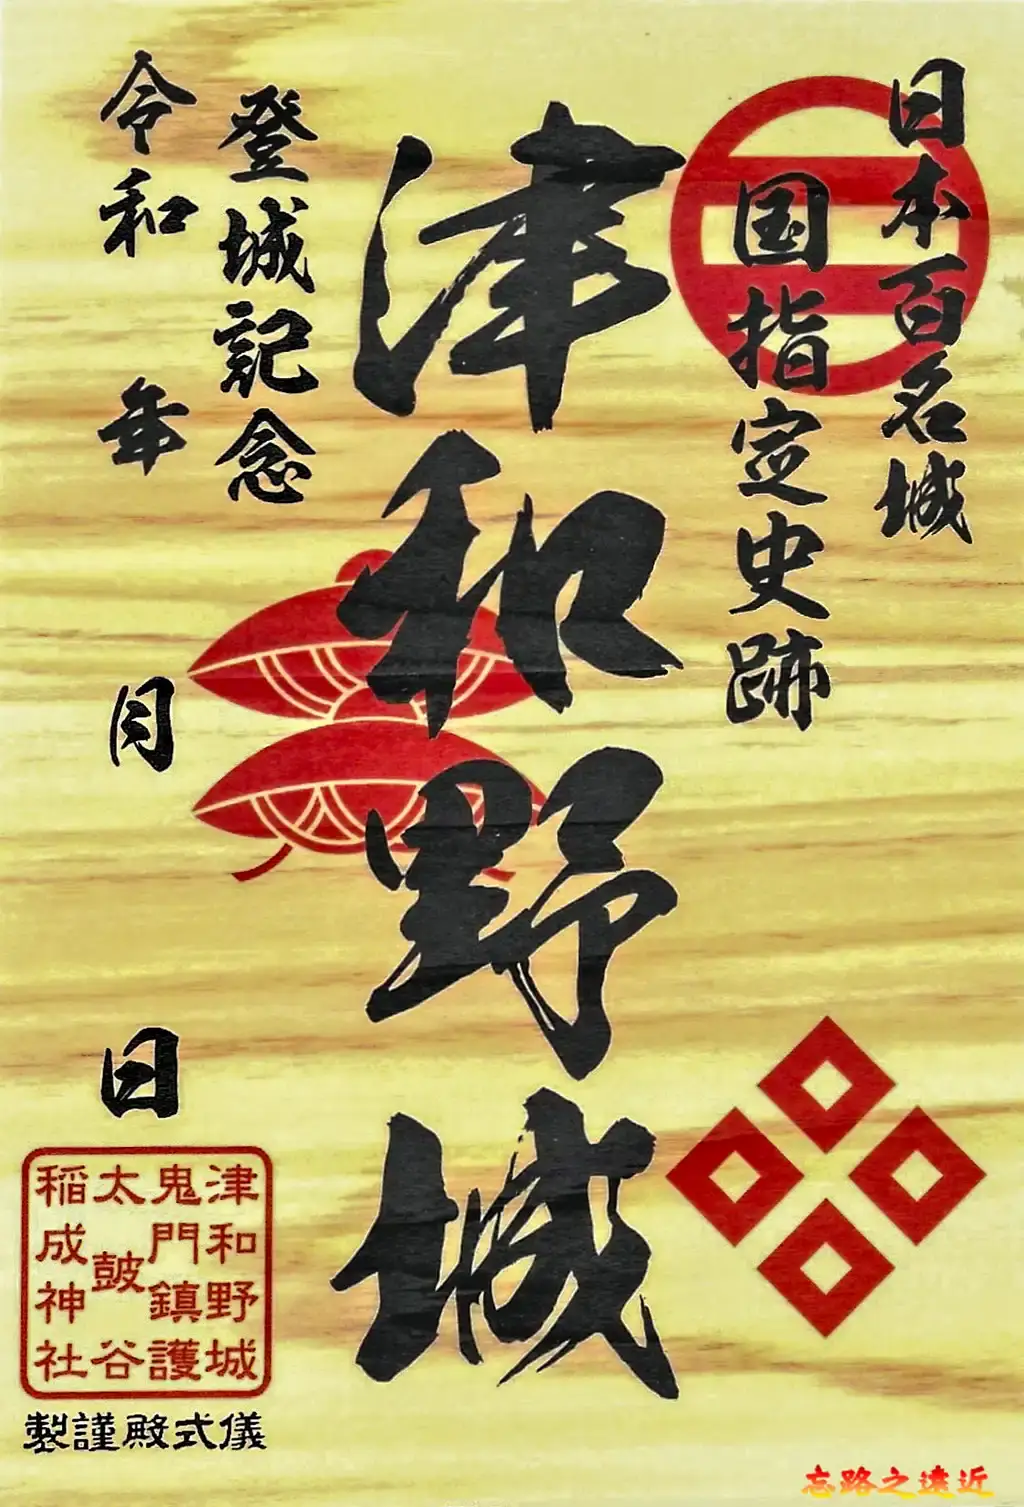 日本百名城
国指定史跡
津和野城
登城記念
令和 年 月 日
津和野城
鬼門鎮護
太鼓谷
稲成神社
儀式殿謹製
忘路之遠近